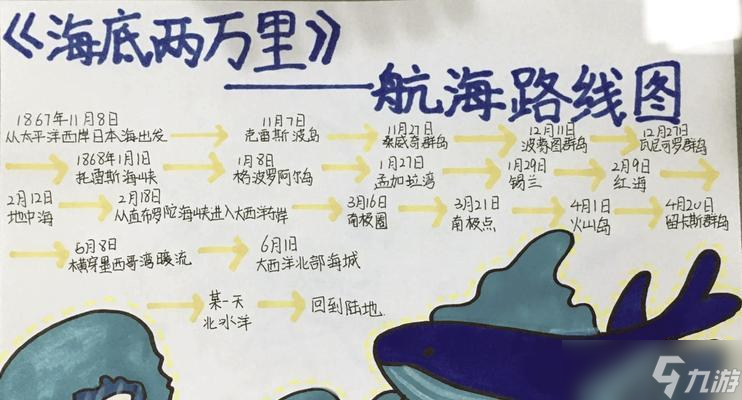 《海底两万里》
——航海路线图
1867年11月8日
从太平洋西岸日本海出发
11月7日
克雷斯波岛
11月27日
桑威奇群岛
12月11日
波魯图群岛
12月27日
瓦尼可罗群岛
1868年1月1日
托雷斯海峡
1月8日
格波罗阿尔岛
1月27日
孟加拉湾
1月29日
锡兰
2月9日
红海
2月12日
地中海
2月18日
从直布罗陀海峡进入大西洋东岸
3月16日
南极圈
3月21日
南极点
4月1日
火山岛
4月20日
留卡斯群岛
6月8日
横穿墨西哥湾暖流
6月1日
大西洋北部海域
某一天
北冰洋
回到陆地
九游